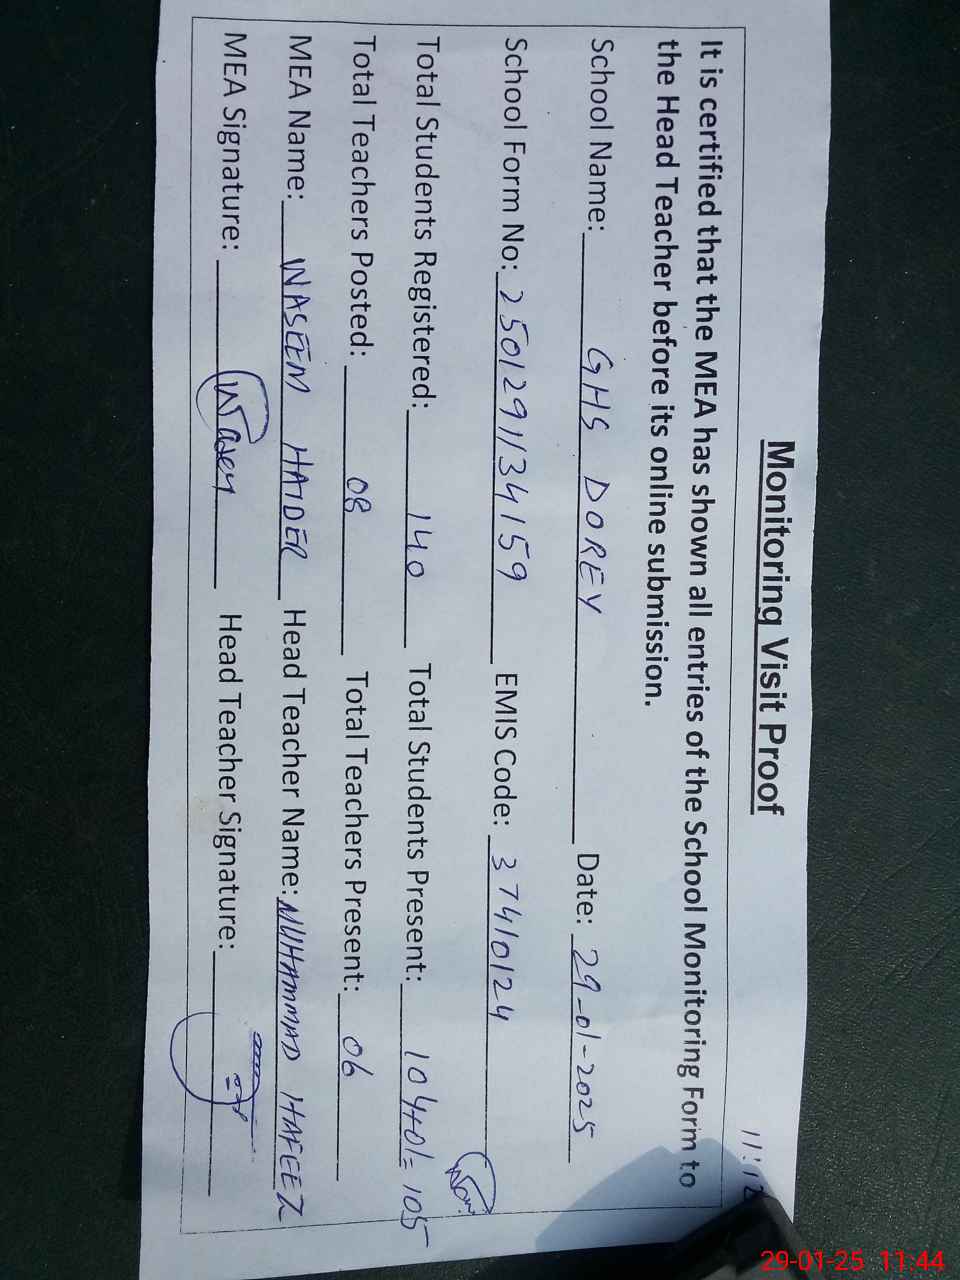 11:12
Monitoring Visit Proof
It is certified that the MEA has shown all entries of the School Monitoring Form to
the Head Teacher before its online submission.
School Name: GHS DOREY Date: 29-01-2025
School Form No: 2501291134159 EMIS Code: 37410124
Total Students Registered: 140 Total Students Present: 104+01=105
Total Teachers Posted: 08 Total Teachers Present: 06
MEA Name: WASEEM HAIDER Head Teacher Name: MUHAMMAD HAFEEZ
MEA Signature: Head Teacher Signature:
29-01-25 11:44